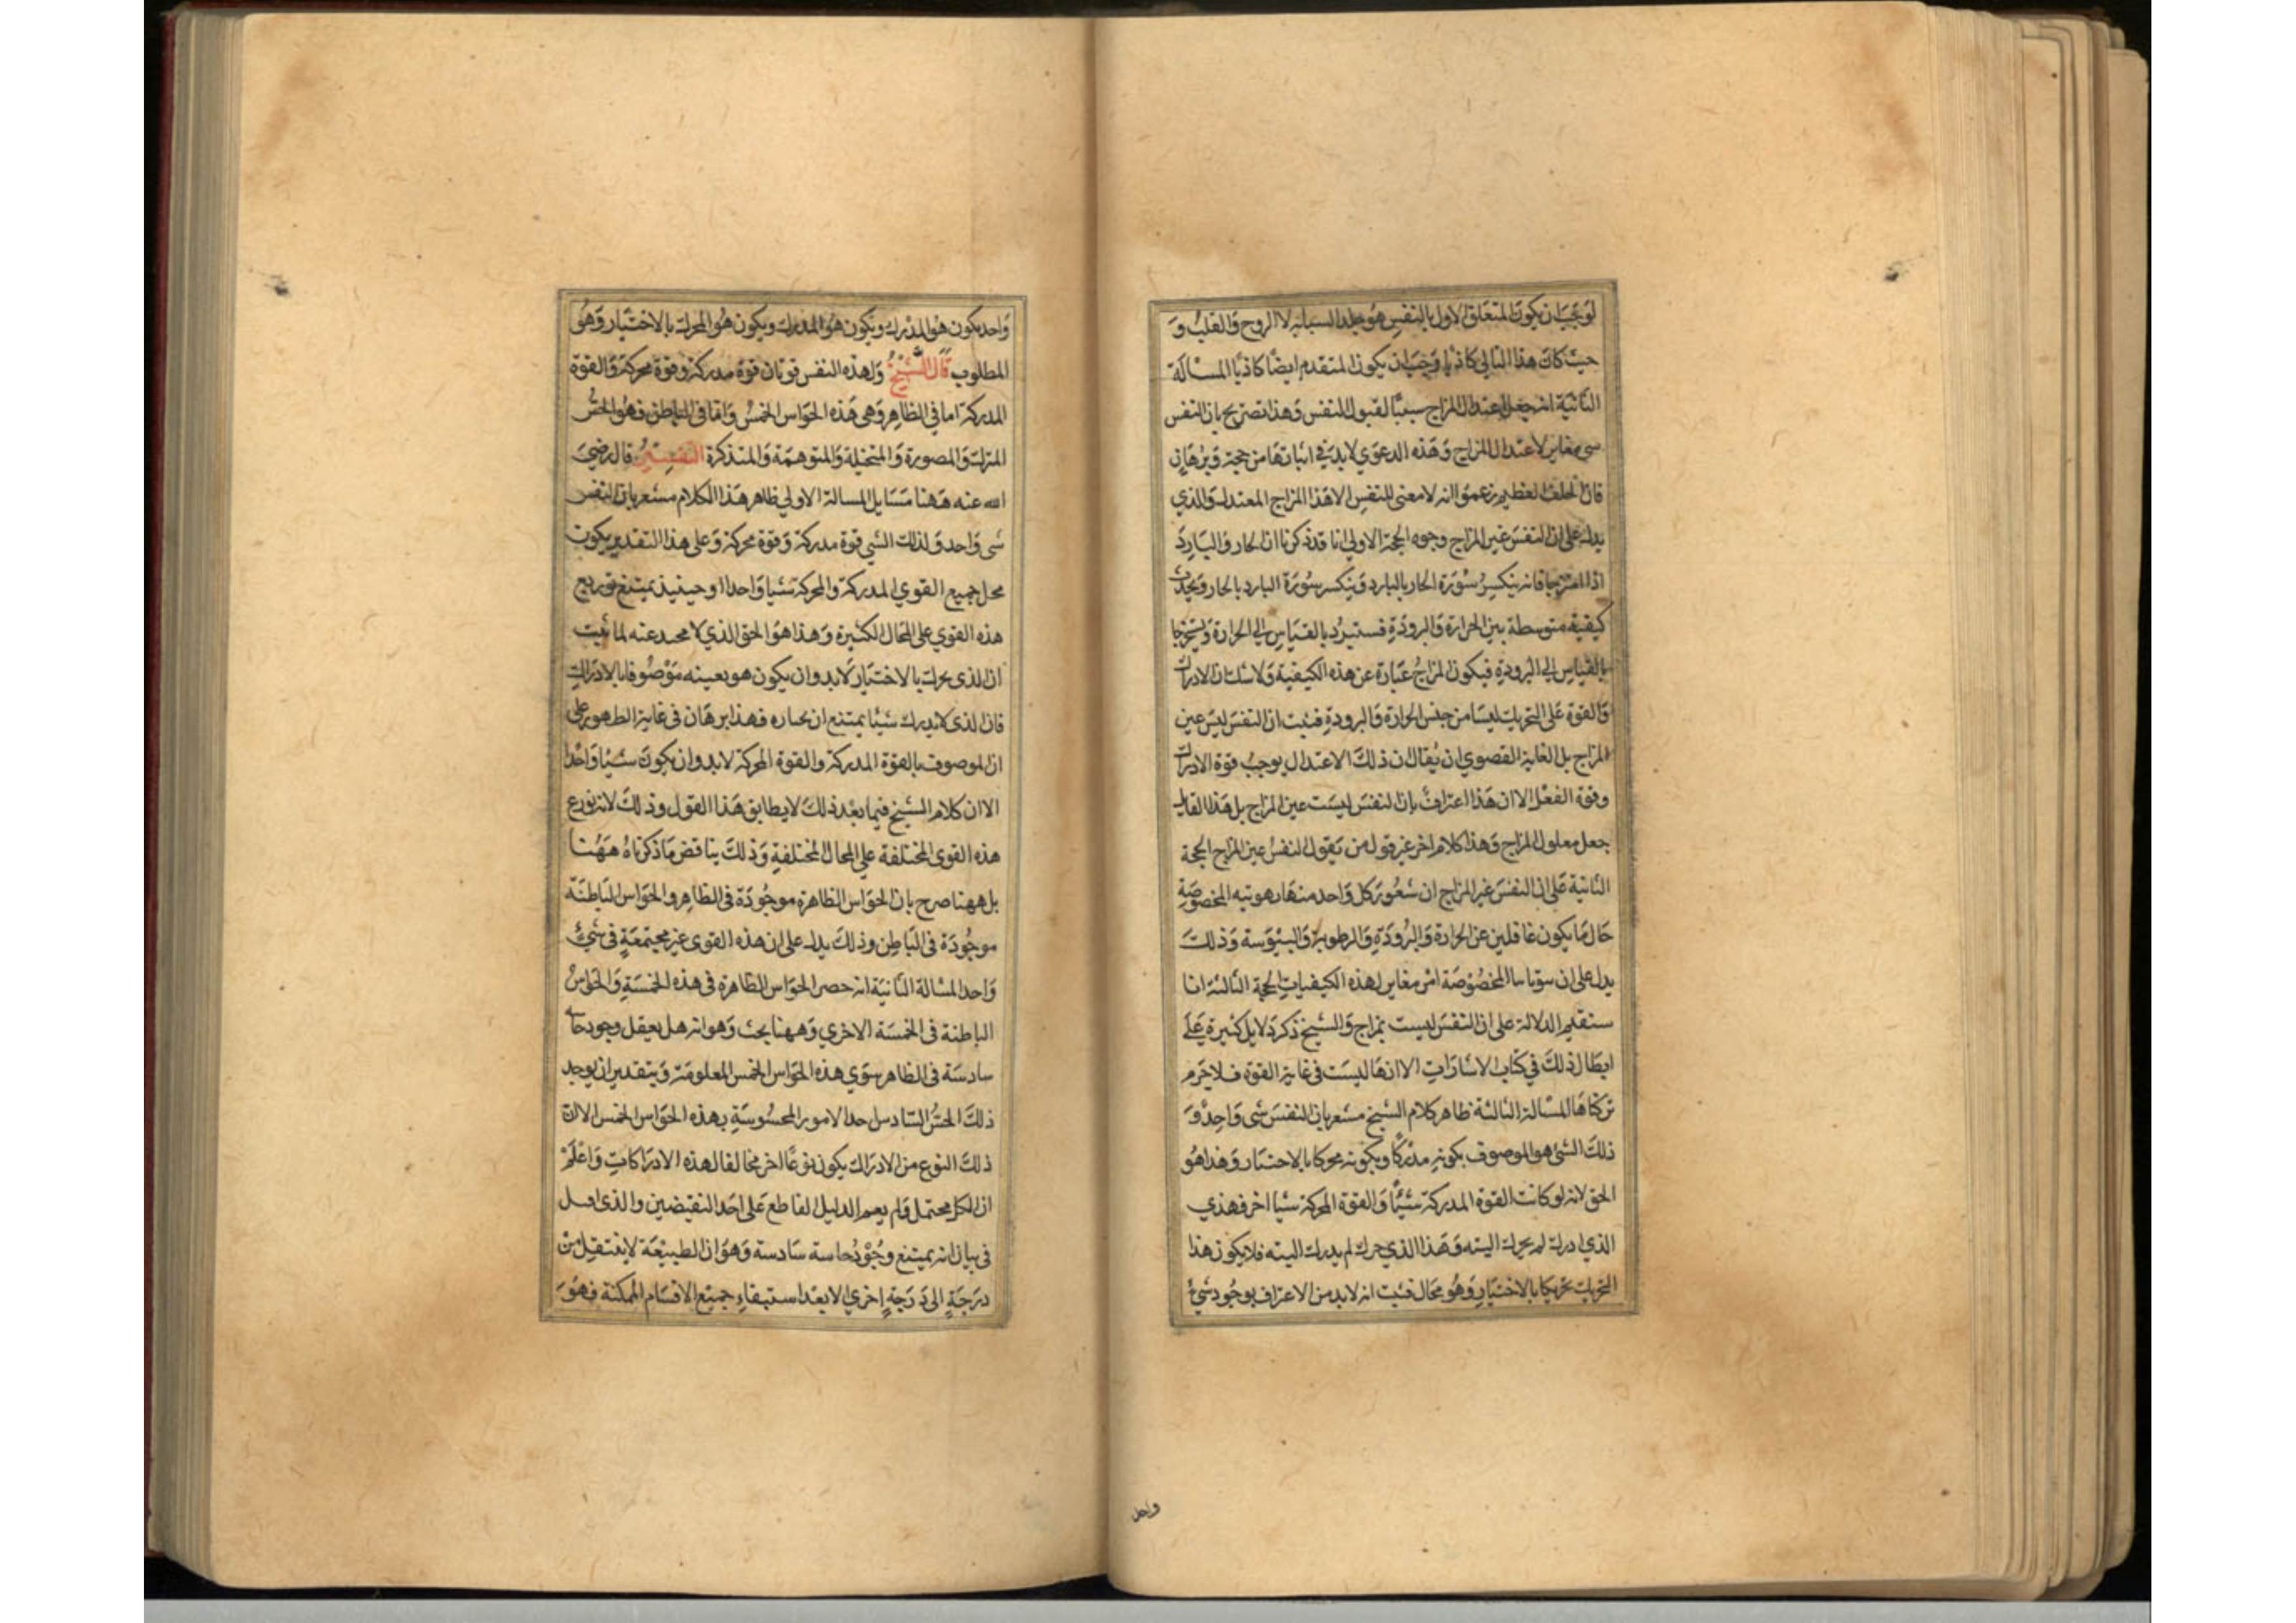 لوجب ان يكون المتعلق الاول بالنفس هو جلد السبابه لا الروح والقلب و
حيث كان هذا التالي كاذبا وجب ان يكون المتقدم ايضا كاذبا المسالة
الثانية انه جعل اعتدال المزاج سببا لقبول النفس وهذا تصريح بان النفس
شي مغاير لاعتدال المزاج وهذه الدعوي لابد في اثباتها من حجة وبرهان
فان الخلف العظيم زعموا انه لا معنى للنفس الا هذا المزاج المعتدل والذي
يدل على ان النفس غير المزاج وجوه الحجة الاولي انا قد ذكرنا ان الحار والبارد
اذا امتزجا فانه ينكسر سورة الحار بالبارد وينكسر سورة البارد بالحار ويحدث
كيفية متوسطة بين الحرارة والبرودة فستبرد بالقياس الي الحرارة
بالقياس الي البرودة فيكون المزاج عبارة عن هذه الكيفية ولا شك ان الادراك
والقوة على التحريك ليسا من جنس الحرارة والبرودة فثبت ان النفس ليس عين
المزاج بل الغاية القصوي ان يقال ان ذلك الاعتدال يوجب قوة الادراك
وقوة الفعل الا ان هذا اعتراف بان النفس ليست عين المزاج بل هذا القايل
جعل معلول المزاج وهذا كلام اخر غير قول من يقول النفس عين المزاج الحجة
الثانية على ان النفس غير المزاج ان شعور كل واحد منها بهويته المخصوصة
حال ما يكون غافلين عن الحرارة والبرودة والرطوبة واليبوسة وذلك
يدل على ان المخصوصة امر مغاير لهذه الكيفيات الحجة الثالثة انا
سنقيم الدلالة على ان النفس ليست بمزاج والشيخ ذكر دلايل كثيرة على
ابطال ذلك في كتاب الاشارات الا انها ليست في غاية القوة فلا جرم
تركناها المسالة الثالثة ظاهر كلام الشيخ مشعر بان النفس شي واحد و
ذلك الشئ هو الموصوف بكونه مدركا وبكونه محركا بالاختيار وهذا هو
الحق لانه لو كانت القوة المدركة شيئا والقوة المحركة شيا اخر فهذي
الذي ادرك لم يحرك البته وهذا الذي حرك لم يدرك البته فلا يكون هذا
التحريك تحريكا بالاختيار وهو محال فثبت انه لا بد من الاعتراف بوجود شئ
واحد
واحد يكون هو المدرك ويكون هو المدرك ويكون هو المحرك بالاختيار وهو
المطلوب قال الشيخ ولهذه النفس قوتان قوة مدركة وقوة محركة والقوة
المدركة اما في الظاهر وهي هذه الحواس الخمس واما في الباطن فهو الحس
المشترك والمصورة والمتخيلة والمتوهمة والمتذكرة التفسير قال رضي
الله عنه ههنا مسايل المسالة الاولي ظاهر هذا الكلام مشعر بان النفس
شى واحد ولذلك الشي قوة مدركة وقوة محركة وعلى هذا التقدير يكون
محل جميع القوي المدركة والمحركة شيا واحدا وحينيذ يمتنع توزيع
هذه القوي على المحال الكثيرة وهذا هو الحق الذي لا محيد عنه لما ثبت
ان الذى يحرك بالاختيار لابد وان يكون هو بعينه موصوفا بالادراك
فان الذى لا يدرك شيئا يمتنع ان يختاره فهذا برهان فى غاية الظهور على
ان الموصوف بالقوة المدركة والقوة المحركة لابد وان يكون شيئا واحدا
الا ان كلام الشيخ فيما بعد ذلك لا يطابق هذا القول وذلك لانه يوزع
هذه القوى المختلفة علي المحال المختلفة وذلك يناقض ما ذكرناه ههنا
بل ههنا صرح بان الحواس الظاهرة موجودة فى الظاهر والحواس الباطنة
موجودة فى الباطن وذلك يدل على ان هذه القوى غير مجتمعة في شئ
واحد المسالة الثانية انه حصر الحواس الظاهرة فى هذه الخمسة والحواس
الباطنة فى الخمسة الاخري وههنا بحث وهو انه هل يعقل وجود حاسة
سادسة فى الظاهر سوي هذه الحواس الخمس المعلومة وبتقدير ان يوجد
ذلك الحس السادس احد الامور المحسوسة بهذه الحواس الخمس الا ان
ذلك النوع من الادراك يكون نوعا اخر مخالفا لهذه الادراكات واعلم
ان الكل محتمل ولم يقم الدليل القاطع على احد النقيضين والذى قيل
فى بيان انه يمتنع وجود حاسة سادسة وهو ان الطبيعة لا ينتقل من
درجة الى درجة اخري الا بعد استيفاء جميع الاقسام الممكنة فهو